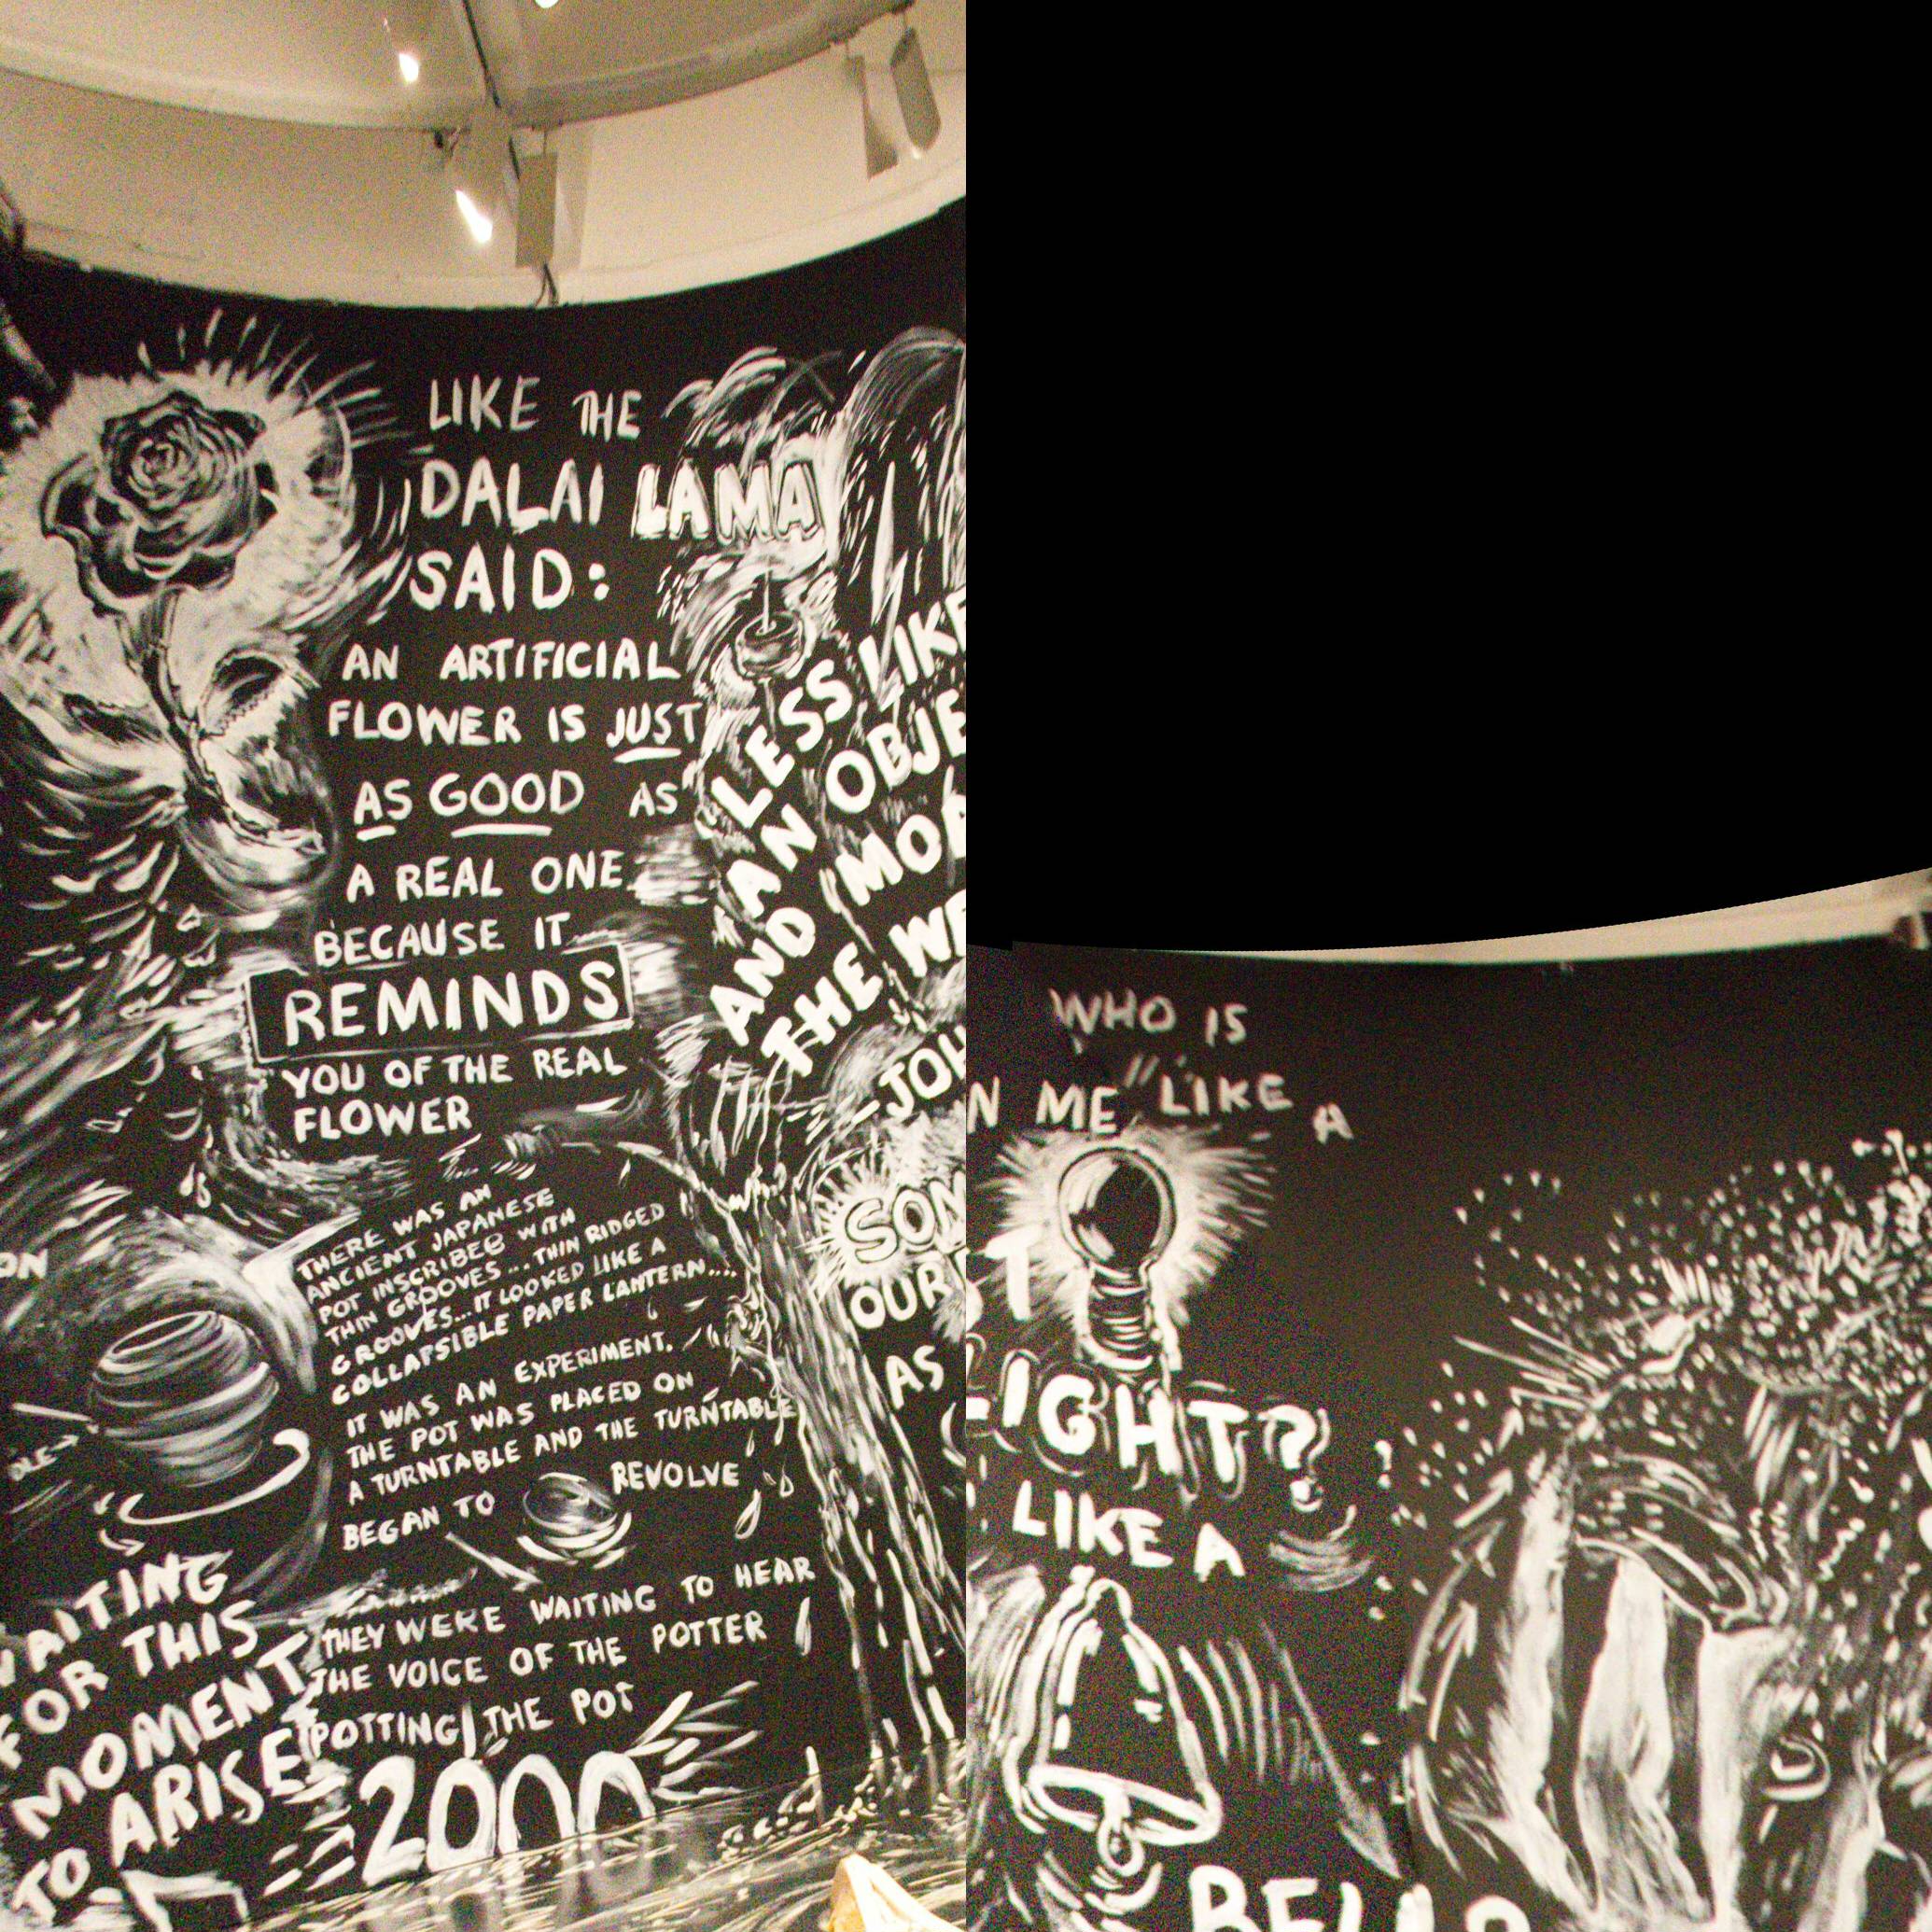 LIKE THE
DALAI LAMA
SAID:
AN ARTIFICIAL
FLOWER IS JUST
AS GOOD AS
A REAL ONE
BECAUSE IT
REMINDS
YOU OF THE REAL
FLOWER
THERE WAS AN
ANCIENT JAPANESE
POT INSCRIBED WITH
THIN GROOVES... THIN RIDGED
GROOVES... IT LOOKED LIKE A
COLLAPSIBLE PAPER LANTERN....
IT WAS AN EXPERIMENT.
THE POT WAS PLACED ON
A TURNTABLE AND THE TURNTABLE
BEGAN TO REVOLVE
THEY WERE WAITING TO HEAR
THE VOICE OF THE POTTER
POTTING THE POT
2000
WAITING
FOR THIS
MOMENT
TO ARISE
LESS LIKE
AN
AND
THE
OUR
AS
WHO IS
ME "LIKE A
LIGHT?
LIKE A